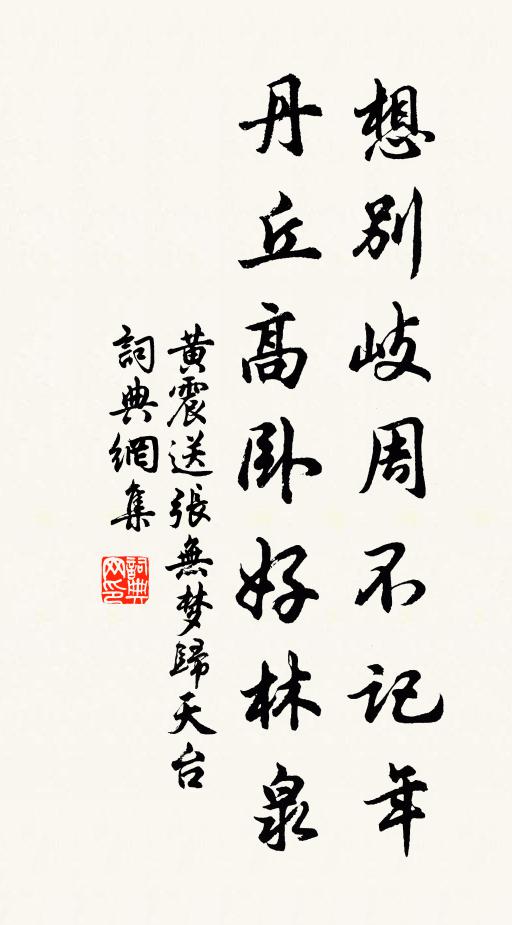 想別岐周不記年
丹丘高卧好林泉
黄震送張無梦歸天台
詞典網集
詞典网印